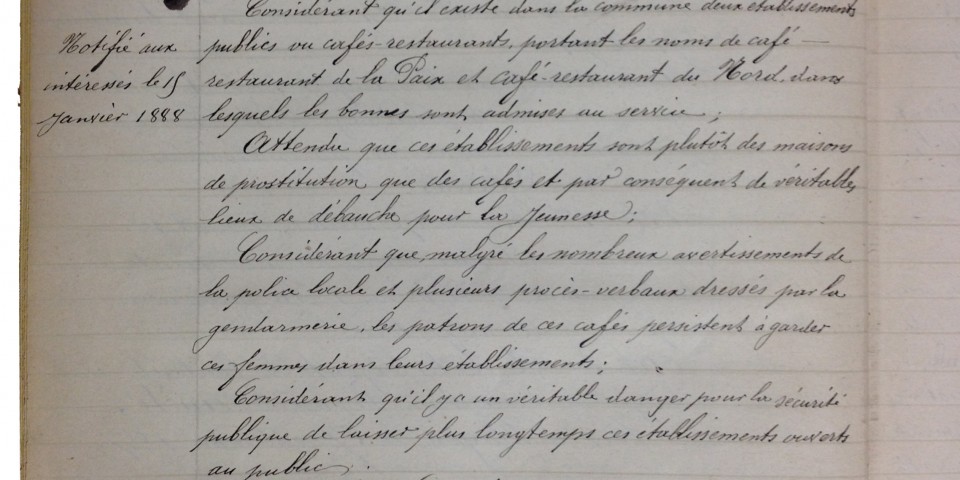 Considérant qu'il existe dans la commune deux établissements
Notifié aux
intéressés le 15
Janvier 1888
publics ou cafés-restaurants, portant les noms de café-
restaurant de la Paix et café-restaurant du Nord, dans
lesquels les bonnes sont admises au service;
Attendu que ces établissements sont plutôt des maisons
de prostitution que des cafés et par conséquent de véritables
lieux de débauche pour la Jeunesse;
Considérant que, malgré les nombreux avertissements de
la police locale et plusieurs procès-verbaux dressés par la
gendarmerie, les patrons de ces cafés persistent à garder
ces femmes dans leurs établissements;
Considérant qu'il y a un véritable danger pour la sécurité
publique de laisser plus longtemps ces établissements ouverts
au public.